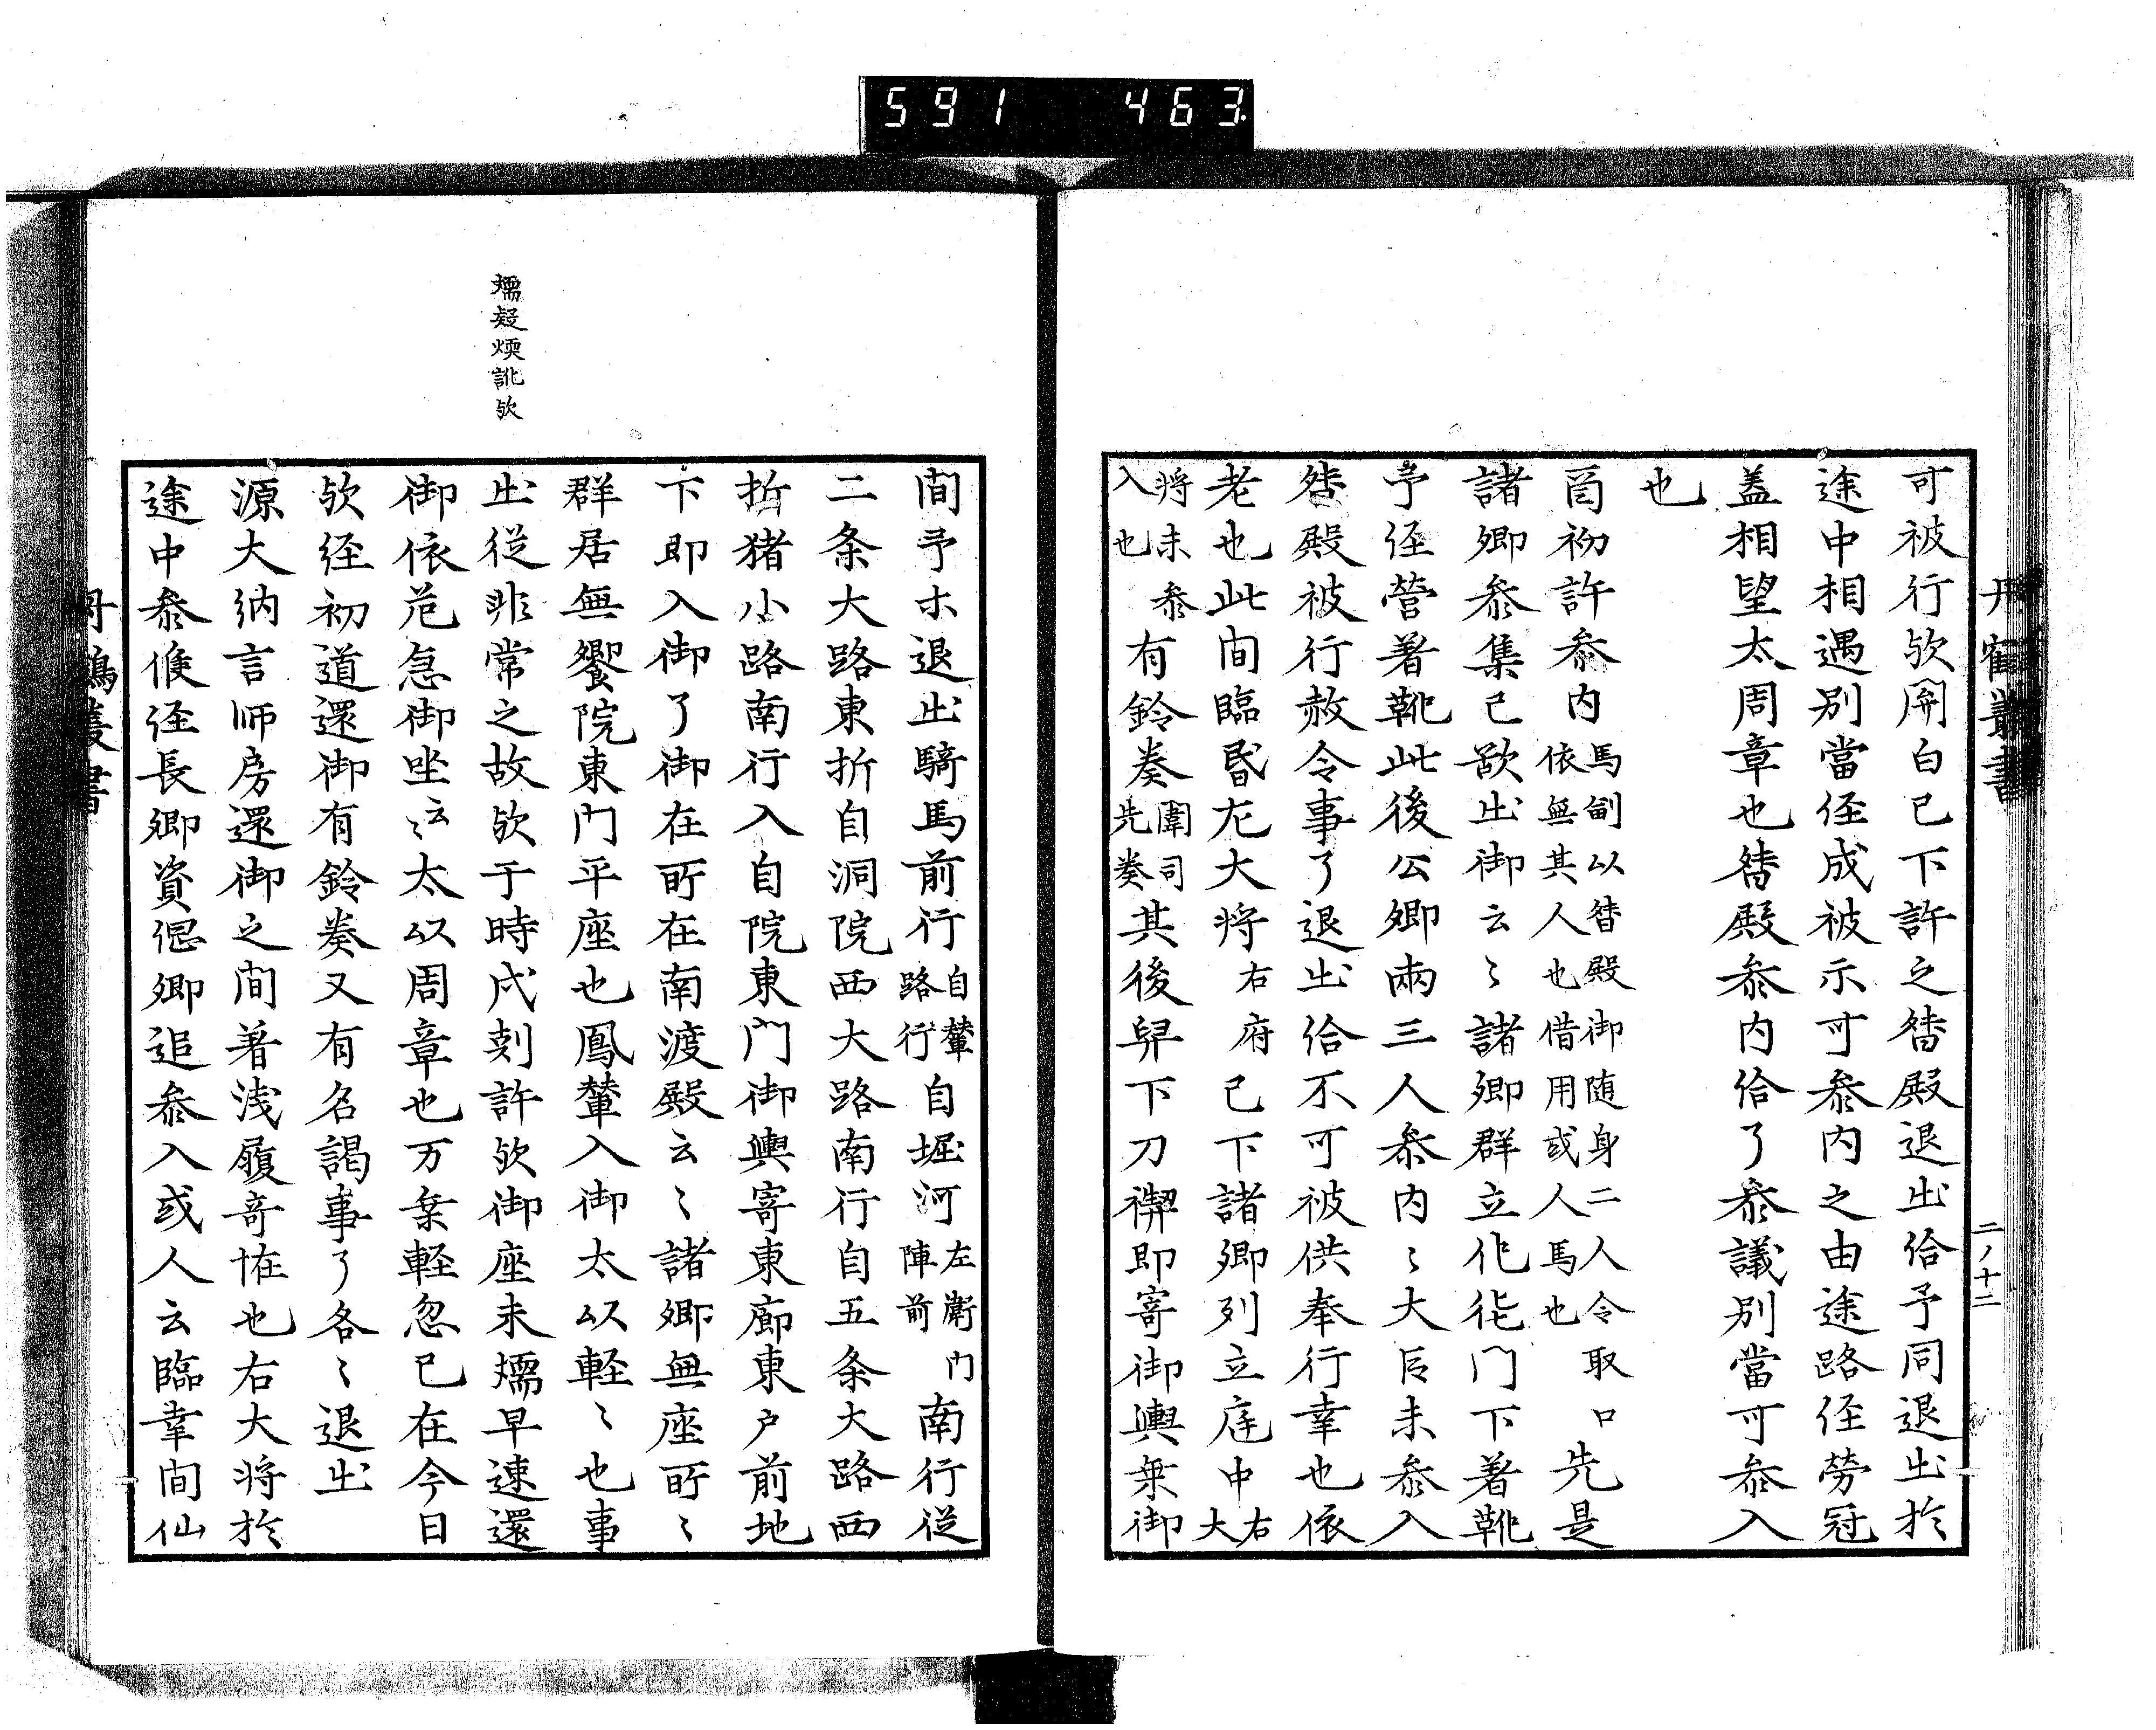 591 463
丹鶴叢書
二ノ十二
可被行欤関白已下許之㬱殿退出佁予同退出於
途中相遇別當侄成被示可参内之由途路侄勞冠
盖相望太周章也㬱殿参内佁了参議別當可参入
也
酉初許参内馬副以㬱殿御随身二人令取口
依無其人也借用或人馬也先是
諸卿参集已欲出御云々諸卿群立化徳門下著靴
予侄營著靴此後公卿兩三人参内々大臣未参入
㬱殿被行赦令事了退出佁不可被供奉行幸也依
老也此間臨昏左大将右府已下諸卿列立庭中右大
将未参
入也有鈴奏闈司
先奏其後舁下刀禊即寄御輿乗御
間予ホ退出騎馬前行自輦
路行自堀河左衛門
陣前南行従
二条大路東折自洞院西大路南行自五条大路西
折猪小路南行入自院東門御輿寄東廊東戸前地
下即入御了御在所在南渡殿云々諸卿無座所々
群居無饗院東門平座也鳳輦入御太以軽々也事
出従非常之故欤于時戌刻許欤御座未燸早速還
御依危急御坐云々太以周章也万乗軽忽已在今日
欤侄初道還御有鈴奏又有名謁事了各々退出
源大納言師房還御之間著浅履奇恠也右大将於
途中参候侄長卿資侭卿追参入或人云臨幸間仙
燸疑煗訛欤
丹鶴叢書